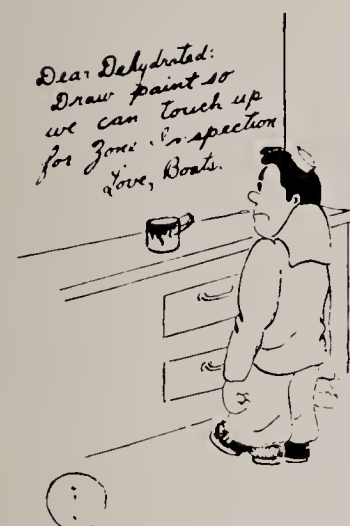 Dear Dehydrated:
Draw paint so
we can touch up
for Zone Inspection
Love, Boats.